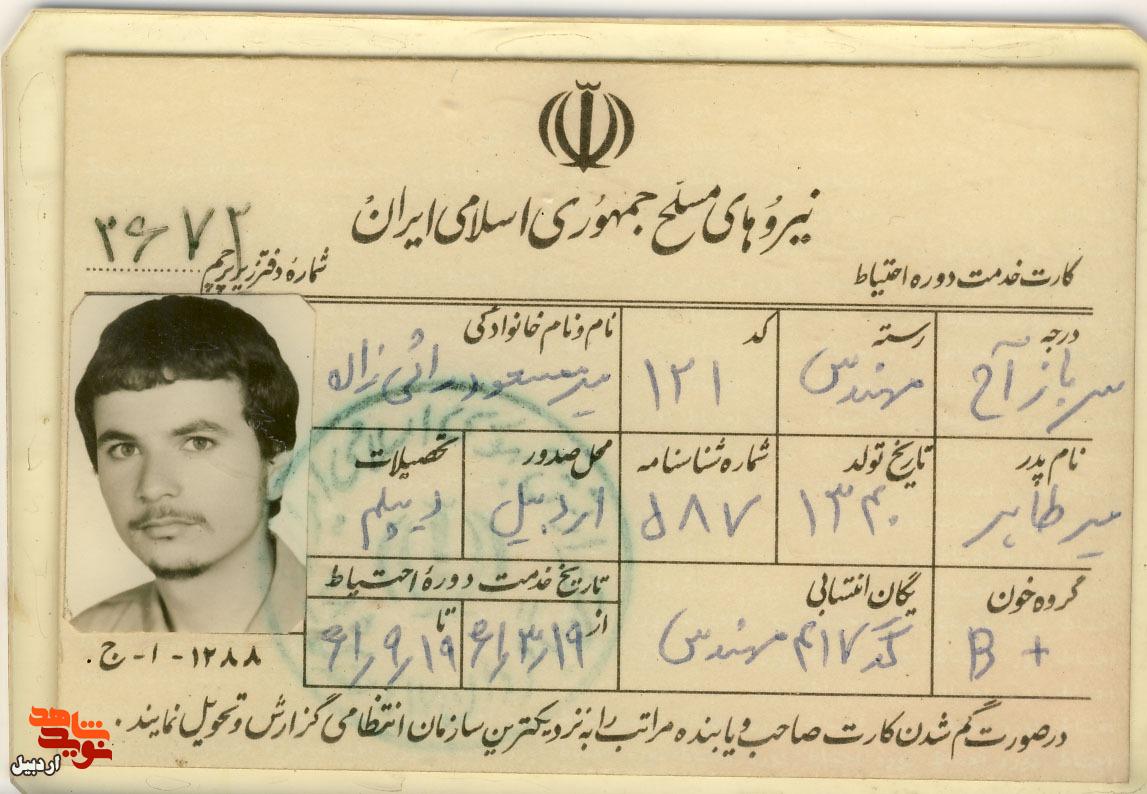 نیروهای مسلح جمهوری اسلامی ایران
۳۶۷۲
شمارهٔ دفتر زیر پرچم
کارت خدمت دوره احتیاط
درجه
سرباز
رسته
مهندس
کد
۱۲۱
نام و نام خانوادگی
میرمسعود
نام پدر
میرطاهر
تاریخ تولد
۱۳۴۰
شماره شناسنامه
۵۸۷
محل صدور
اردبیل
تحصیلات
دیپلم
گروه خون
B +
یگان انتسابی
گد ۴۱۷ مهندس
تاریخ خدمت دورهٔ احتیاط
از
۶۱/۳/۱۹
تا
۶۱/۹/۱۹
۱۲۸۸ - ۱ - ج.
درصورت گم شدن کارت صاحب و یابنده مراتب را به نزدیکترین سازمان انتظامی گزارش و تحویل نمایند.
نوید شاهد
اردبیل